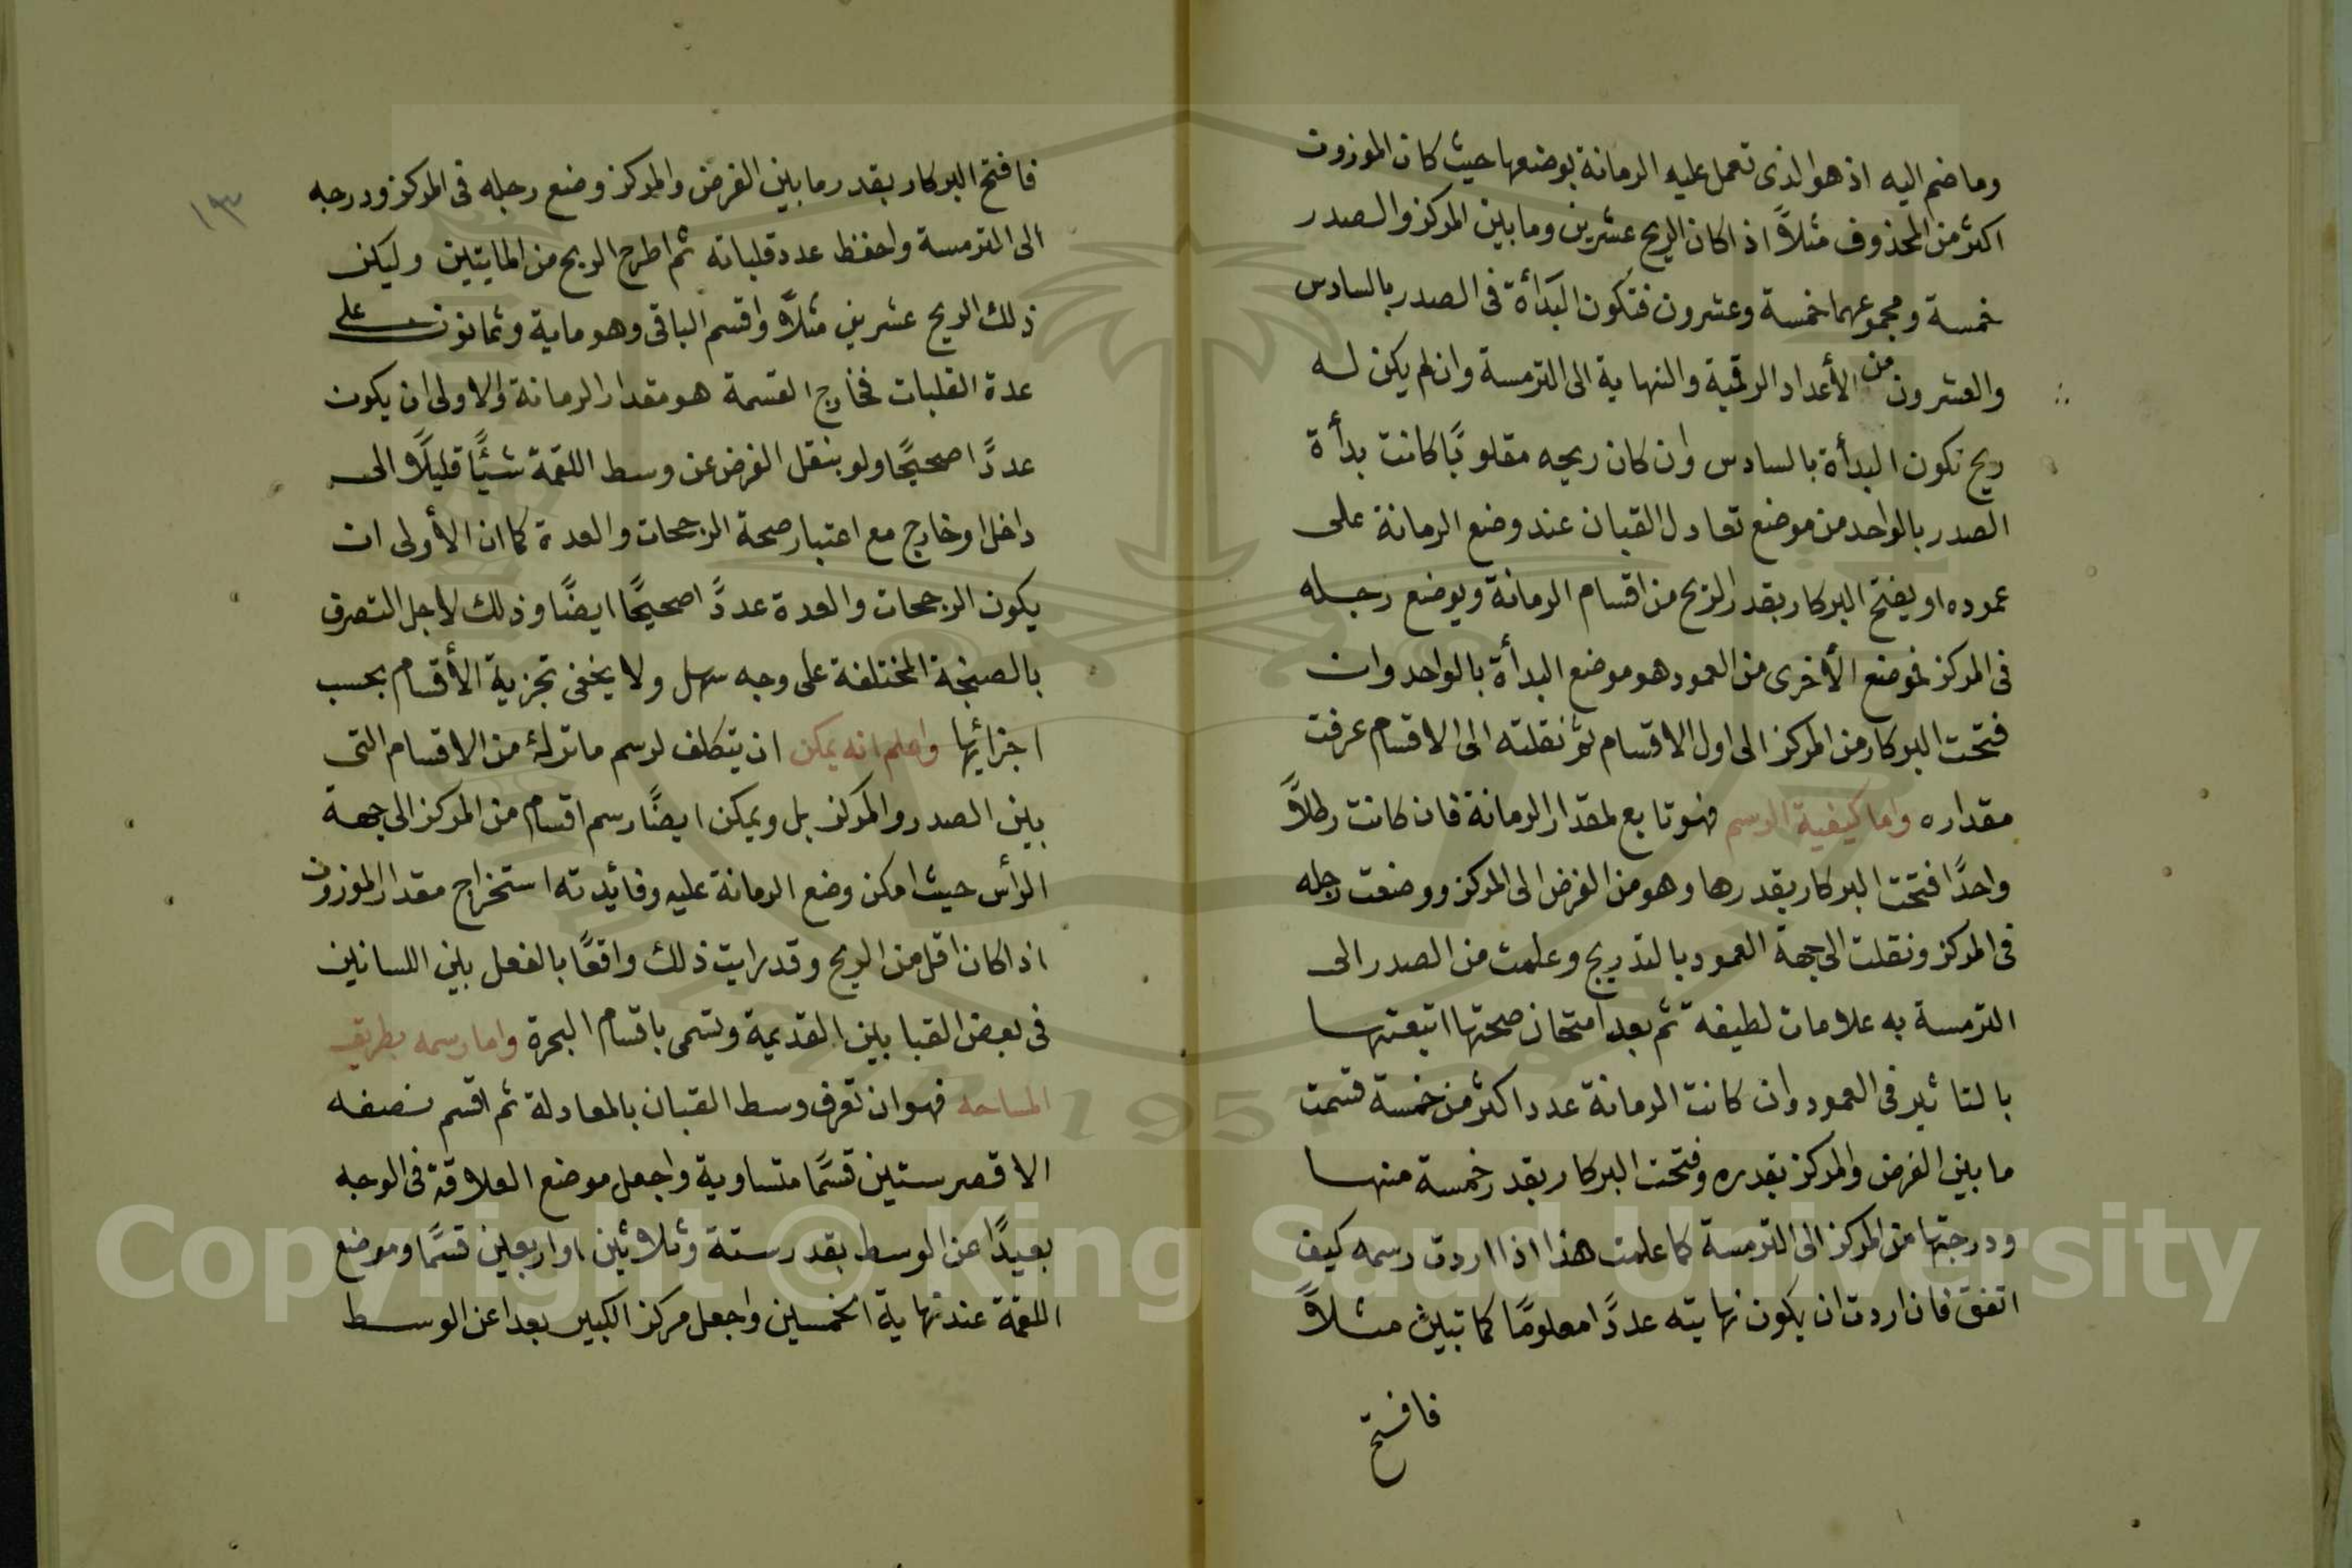 وما ضم اليه اذ هو الذى تعمل عليه الرمانة بوضعها حيث كان الموزون
اكثر من المحذوف مثلاً اذا كان الريح عشرين وما بين المركز والصدر
خمسة ومجموعهما خمسة وعشرون فتكون البدأة فى الصدر بالسادس
والعشرون من الأعداد الرقمية والنهاية الى الترمسة وان لم يكن له
ريح تكون البدأة بالسادس وان كان ريحه مقلوبًا كانت بدأة
الصدر بالواحد من موضع تعادل القبان عند وضع الرمانة على
عموده او يفتح البركار بقدر الريح من اقسام الرمانة ويوضع رجله
فى المركز فموضع الأخرى من العمود هو موضع البدأة بالواحد وان
فتحت البركار من المركز الى اول الاقسام ثم نقلته الى الاقسام عرفت
مقداره واما كيفية الرسم فهو تابع لمقدار الرمانة فان كانت رطلاً
واحدًا فتحت البركار بقدرها وهو من الفرض الى المركز ووضعت رجله
فى المركز ونقلت الى جهة العمود بالتدريج وعلمت من الصدر الى
الترمسة به علامات لطيفه ثم بعد امتحان صحتها اتبعتها
بالتاثير فى العمود وان كانت الرمانة عددا اكثر من خمسة قسمت
ما بين الفرض والمركز بقدره وفتحت البركار بقدر خمسة منها
ودرجتها من المركز الى الترمسة كما علمت هذا اذا اردت رسمه كيف
اتفق فان اردت ان يكون نهايته عددًا معلومًا كما تبين مثلاً
فافتح
١٣
فافتح البركار بقدر ما بين الفرض والمركز وضع رجله فى المركز ودرجه
الى الترمسة واحفظ عدد قلباته ثم اطرح الريح من المايتين وليكن
ذلك الريح عشرين مثلاً واقسم الباقى وهو ماية وثمانون على
عدة القلبات فخارج القسمة هو مقدار الرمانة والاولى ان يكون
عددًا صحيحًا ولو بنقل الفرض عن وسط اللقمة شيئًا قليلًا الى
داخل او خارج مع اعتبار صحة الرجحات والعدة كما ان الأولى ان
يكون الرجحات والعدة عددًا صحيحًا ايضًا وذلك لاجل التصرف
بالصنجة المختلفة على وجه سهل ولا يخفى تجزية الأقسام بحسب
اجزائها واعلم انه يمكن ان يتكلف لرسم ما ترك من الاقسام التى
بين الصدر والمركز بل ويمكن ايضًا رسم اقسام من المركز الى جهة
الرأس حيث امكن وضع الرمانة عليه وفائدته استخراج مقدار الموزون
اذا كان اقل من الريح وقد رايت ذلك واقعًا بالفعل بين اللسانين
فى بعض القبابين القديمة وتسمى باقسام البحرة واما رسمه بطريق
المساحه فهو ان تعرف وسط القبان بالمعادلة ثم اقسم نصفه
الاقصر ستين قسمًا متساوية واجعل موضع العلاقة فى الوجه
بعيدًا عن الوسط بقدر ستة وثلاثين او اربعين قسمًا وموضع
اللقمة عند نهاية الخمسين واجعل مركز الكبير بعدا عن الوسط
Copyright © King Saud University
1957